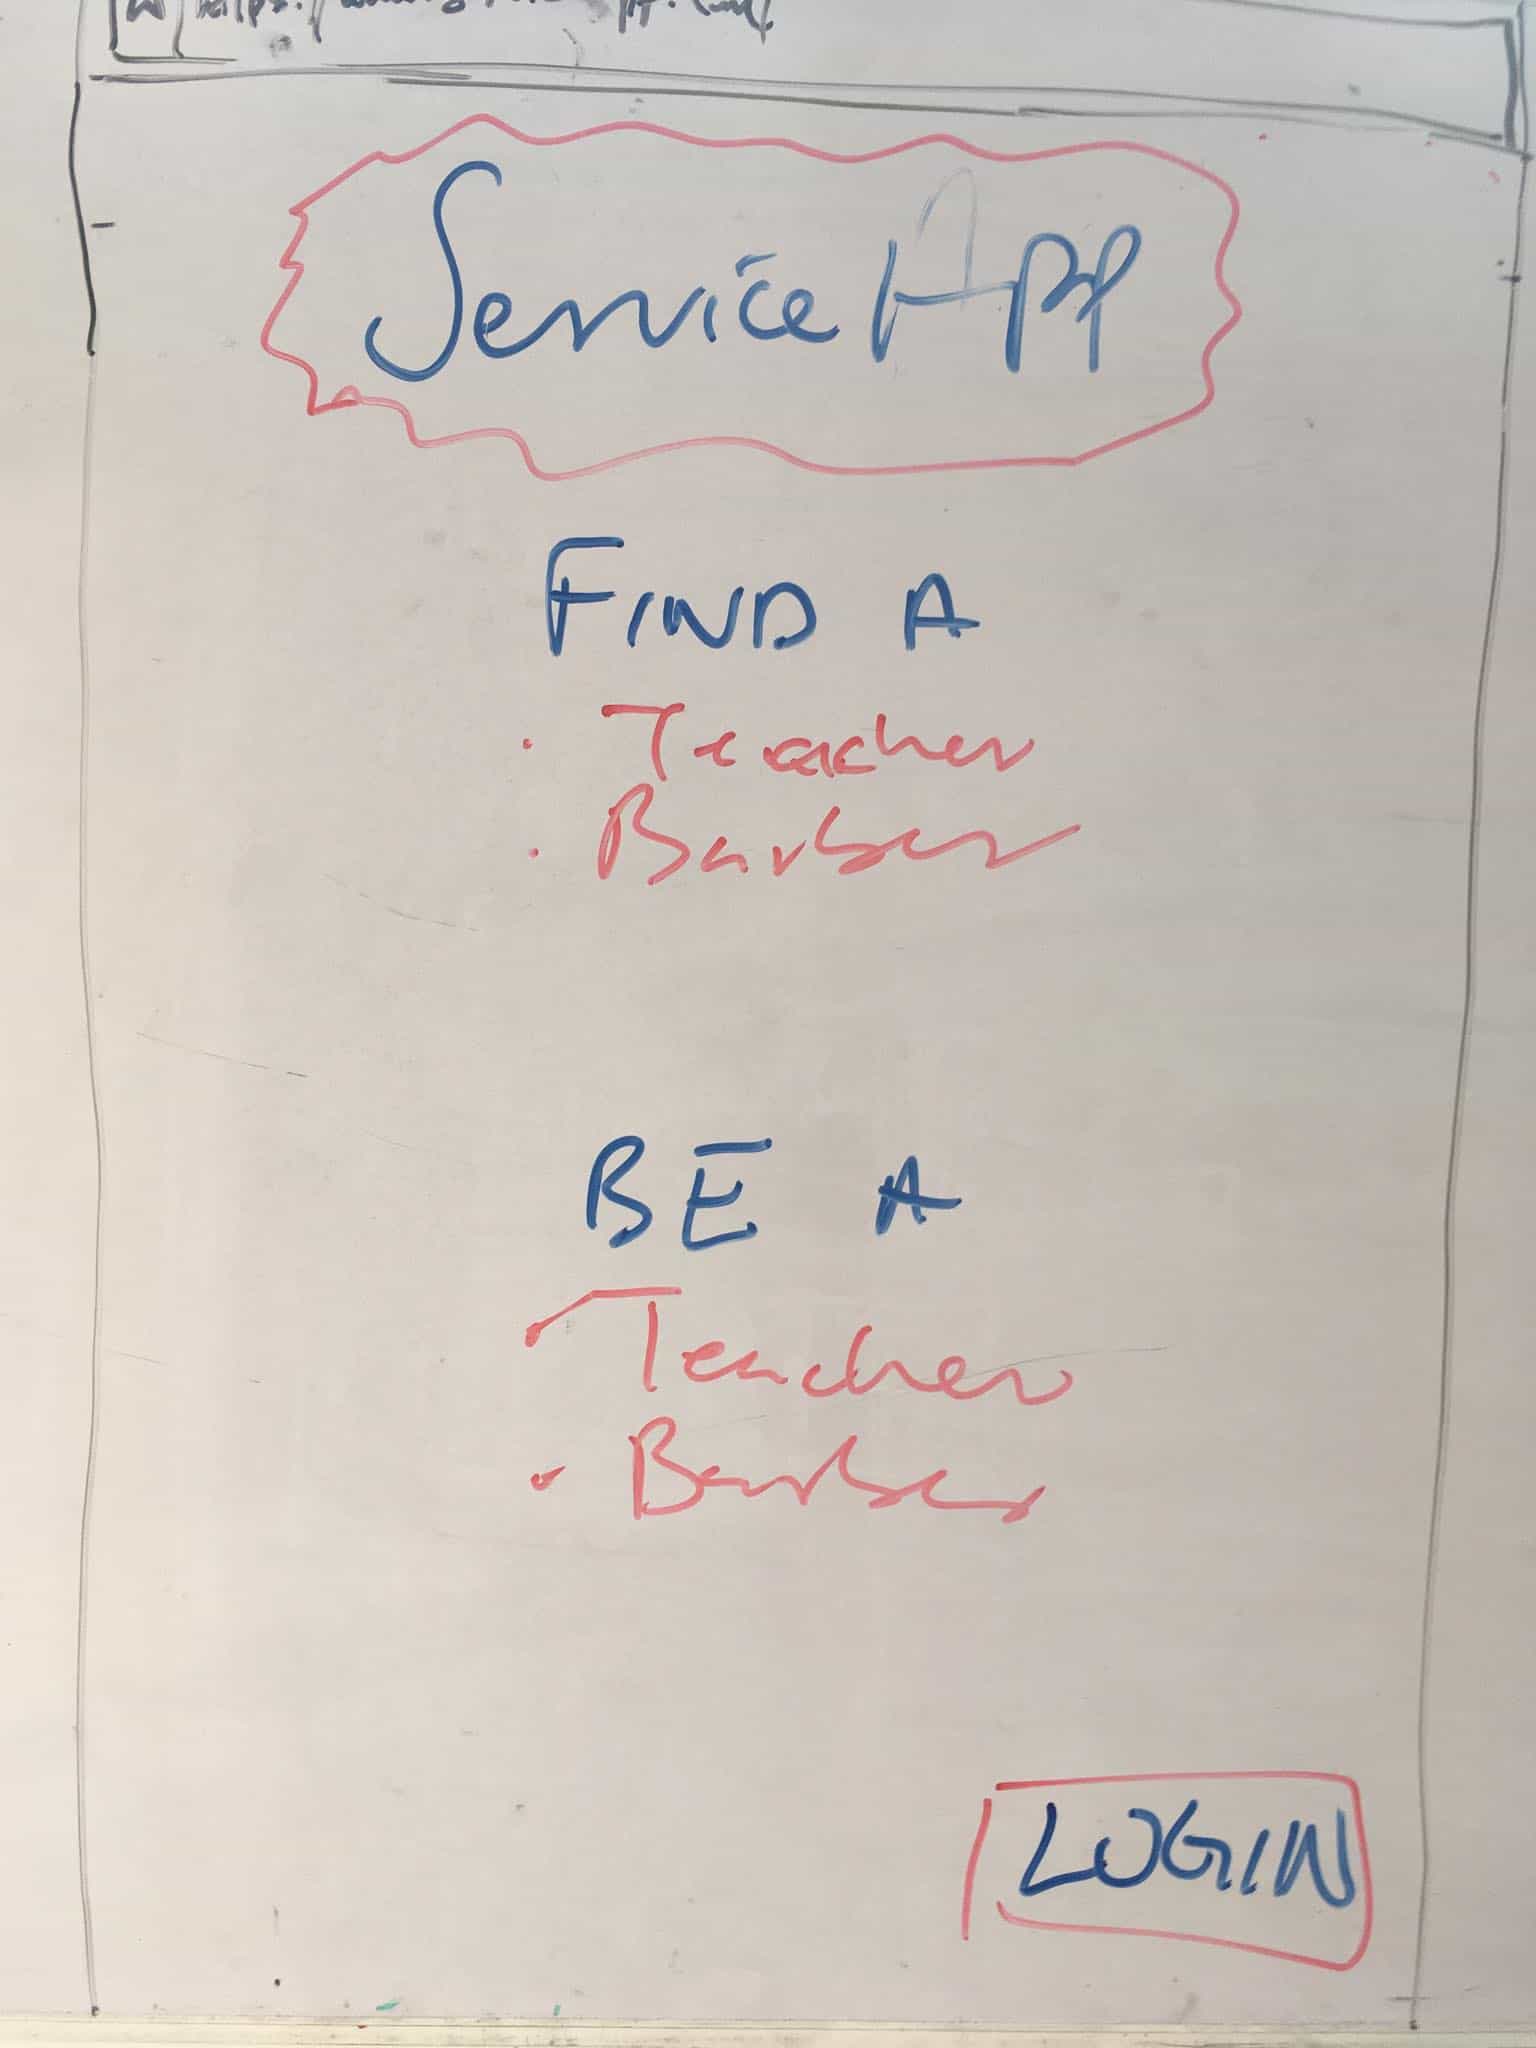 https://
Service App
FIND A
· Teacher
· Barber
BE A
· Teacher
· Barber
LOGIN